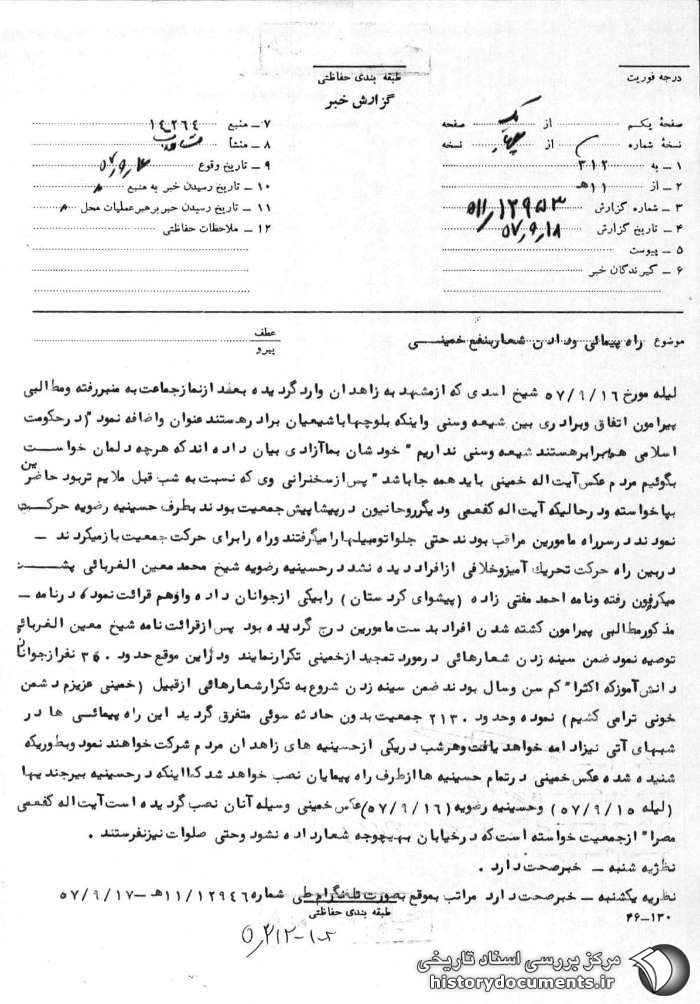 درجه فوریت
طبقه بندی حفاظتی
گزارش خبر
صفحه یکم از یک صفحه
نسخه شماره از چهار نسخه
۱ - به ۳۱۲
۲ - از ۱۱ هـ
۳ - شماره گزارش ۱۲۹۵۳/۵۱۱
۴ - تاریخ گزارش ۵۷/۹/۱۸
۵ - پیوست
۶ - گیرندگان خبر
۷ - منبع ۱۴۲۶۴
۸ - منشأ
۹ - تاریخ وقوع
۱۰ - تاریخ رسیدن خبر به منبع
۱۱ - تاریخ رسیدن خبر برهبر عملیات محل
۱۲ - ملاحظات حفاظتی
موضوع راه پیمائی ودادن شعار بنفع خمینی
عطف
پیرو
لیله مورخ ۵۷/۹/۱۶ شیخ اسدی که از مشهد به زاهدان وارد گردیده بعد از نماز جماعت به منبر رفته ومطالبی
پیرامون اتفاق وبرادری بین شیعه وسنی واینکه بلوچها با شیعیان برادر هستند عنوان واضافه نمود "در حکومت
اسلامی همه برابر هستند شیعه وسنی نداریم " خودشان بما آزادی بیان داده اند که هرچه دلمان خواست
بگوئیم مردم عکس آیت اله خمینی باید همه جا باشد " پس از سخنرانی وی که نسبت به شب قبل ملایم تر بود حاضرین
بپا خواسته ودرحالیکه آیت اله کفعمی ودیگر روحانیون درپیشاپیش جمعیت بودند بطرف حسینیه رضویه حرکت
نمودند درسر راه مامورین مراقب بودند حتی جلو اتومبیلها را میگرفتند وراه را برای حرکت جمعیت باز میکردند -
دربین راه حرکت تحریک آمیز وخلافی از افراد دیده نشد درحسینیه رضویه شیخ محمد معین الغربائی پشت
میکرفون رفته ونامه احمد مفتی زاده (پیشوای کردستان) را بیکی از جوانان داده واوهم قرائت نموده درنامه -
مذکور مطالبی پیرامون کشته شدن افراد بدست مامورین درج گردیده بود پس از قرائت نامه شیخ معین الغربائی
توصیه نمود ضمن سینه زدن شعارهائی درمورد تمجید از خمینی تکرار نمایند ودراین موقع حدود ۳۵۰ نفر از جوانان
دانش آموز که اکثرا" کم سن وسال بودند ضمن سینه زدن شروع به تکرار شعارهائی از قبیل (خمینی عزیزم دشمن
خونی ترا می کشیم) نموده وحدود ۲۱۳۰ جمعیت بدون حادثه سوئی متفرق گردید این راه پیمائی ها در
شبهای آتی نیز ادامه خواهد یافت وهرشب دریکی از حسینیه های زاهدان مردم شرکت خواهند نمود وبطوریکه
شنیده شده عکس خمینی درتمام حسینیه ها از طرف راه پیمایان نصب خواهد شد کما اینکه درحسینیه بیرجندیها
(لیله ۵۷/۹/۱۵) وحسینیه رضویه (۵۷/۹/۱۶) عکس خمینی وسیله آنان نصب گردیده است آیت اله کفعمی
مصرا" از جمعیت خواسته است که درخیابان بهیچوجه شعار داده نشود وحتی صلوات نیز نفرستند .
نظریه شنبه - خبر صحت دارد .
نظریه یکشنبه - خبر صحت دارد مراتب بموقع بصورت تلفنگرام طی شماره ۱۱/۱۲۹۴۶ هـ - ۵۷/۹/۱۷
طبقه بندی حفاظتی
۴۶-۱۳۰
مرکز بررسی اسناد تاریخی
historydocuments.ir